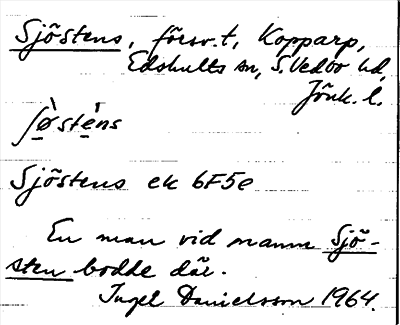 Sjöstens, försv. t., Kopparp,
Edshults sn, S. Vedbo hd,
Jönk. l.
ʃø̀sténs
Sjöstens ek 6F5e
En man vid namn Sjö-
sten bodde där.
Ingel Danielsson 1964.